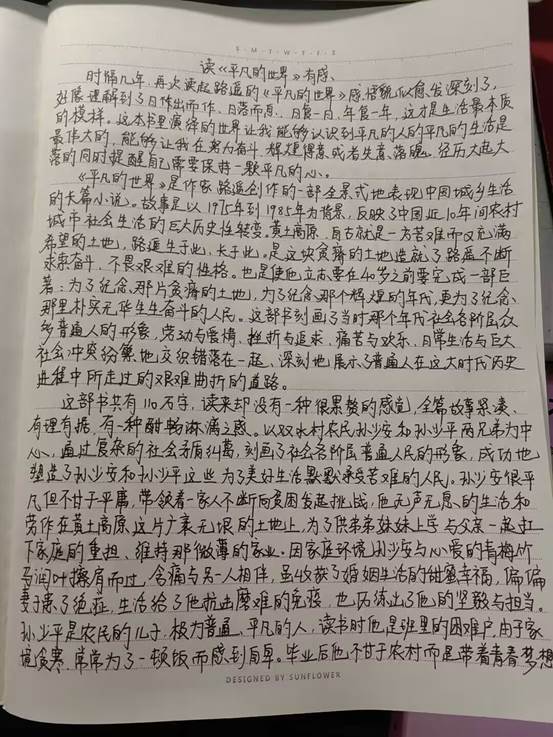 S · M · T · W · T · F · S
读《平凡的世界》有感、
时隔几年,再次读起路遥的《平凡的世界》感悟貌似愈发深刻了,
好像理解到了日作出而作、日落而息、日复一日、年复一年,这才是生活最本质
的模样。这本书里演绎的世界让我能够认识到平凡的人的平凡的生活是
最伟大的,能够让我在努力奋斗、辉煌得意或者失意、落魄。经历大起大
落的同时提醒自己需要保持一颗平凡的心。
《平凡的世界》是作家路遥创作的一部全景式地表现中国城乡生活
的长篇小说。故事是以1975年到1985年为背景,反映了中国近10年间农村
城市社会生活的巨大历史性转变。黄土高原,自古就是一方苦难而又充满
希望的土地,路遥生于此,长于此。是这块贫瘠的土地造就了路遥不断
求索奋斗,不畏艰难的性格。也是使他立志要在40岁之前要完成一部巨
著:为了纪念那片贫瘠的土地,为了纪念那个辉煌的年代,更为了纪念
那里朴实无华生生奋斗的人民。这部书刻画了当时那个年代社会各阶层众
多普通人的形象,劳动与爱情、挫折与追求、痛苦与欢乐、日常生活与巨大
社会冲突纷繁地交织错落在一起、深刻地展示了普通人在这大时代历史
进程中所走过的艰难曲折的道路。
这部书共有110万字,读来却没有一种很累赘的感觉,全篇故事紧凑、
有理有据,有一种酣畅淋漓之感。以双水村农民孙少安和孙少平两兄弟为中
心,通过复杂的社会矛盾纠葛,刻画了社会各阶层普通人民的形象,成功地
塑造了孙少安和孙少平这些为了美好生活默默承受苦难的人民。孙少安很平
凡但不甘于平庸,带领着一家人不断向贫困发起挑战,他无声无息的生活和
劳作在黄土高原这片广袤无垠的土地上,为了供弟弟妹妹上学与父亲一起扛
下家庭的重担、维持那微薄的家业。因家庭环境孙少安与心爱的青梅竹
马润叶擦肩而过,含痛与另一人相伴,虽收获了婚姻生活的甜蜜幸福,偏偏
妻子患了绝症,生活给了他抗击磨难的免疫,也历练出了他的坚毅与担当。
孙少平是农民的儿子,极为普通、平凡的人,读书时他是班里的困难户,由于家
境贫寒,常常为了一顿饭而感到自卑。毕业后他不甘于农村而是带着青春梦想
DESIGNED BY SUNFLOWER